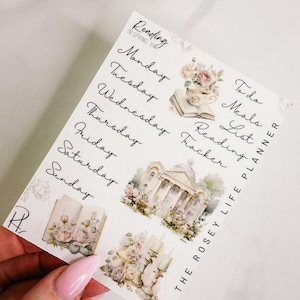 Reading
IN SPRING
Monday
Tuesday
Wednesday
Thursday
Friday
Saturday
Sunday
To do
Meals
List
Reading
Tracker
THE ROSEY LIFE PLANNER